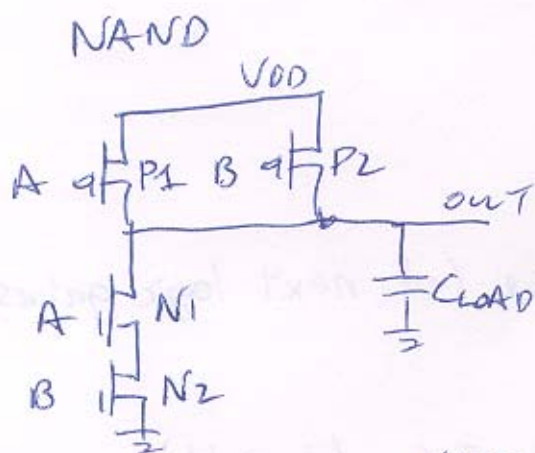 NAND
VDD
A P1 B P2
OUT
A N1
CLOAD
B N2